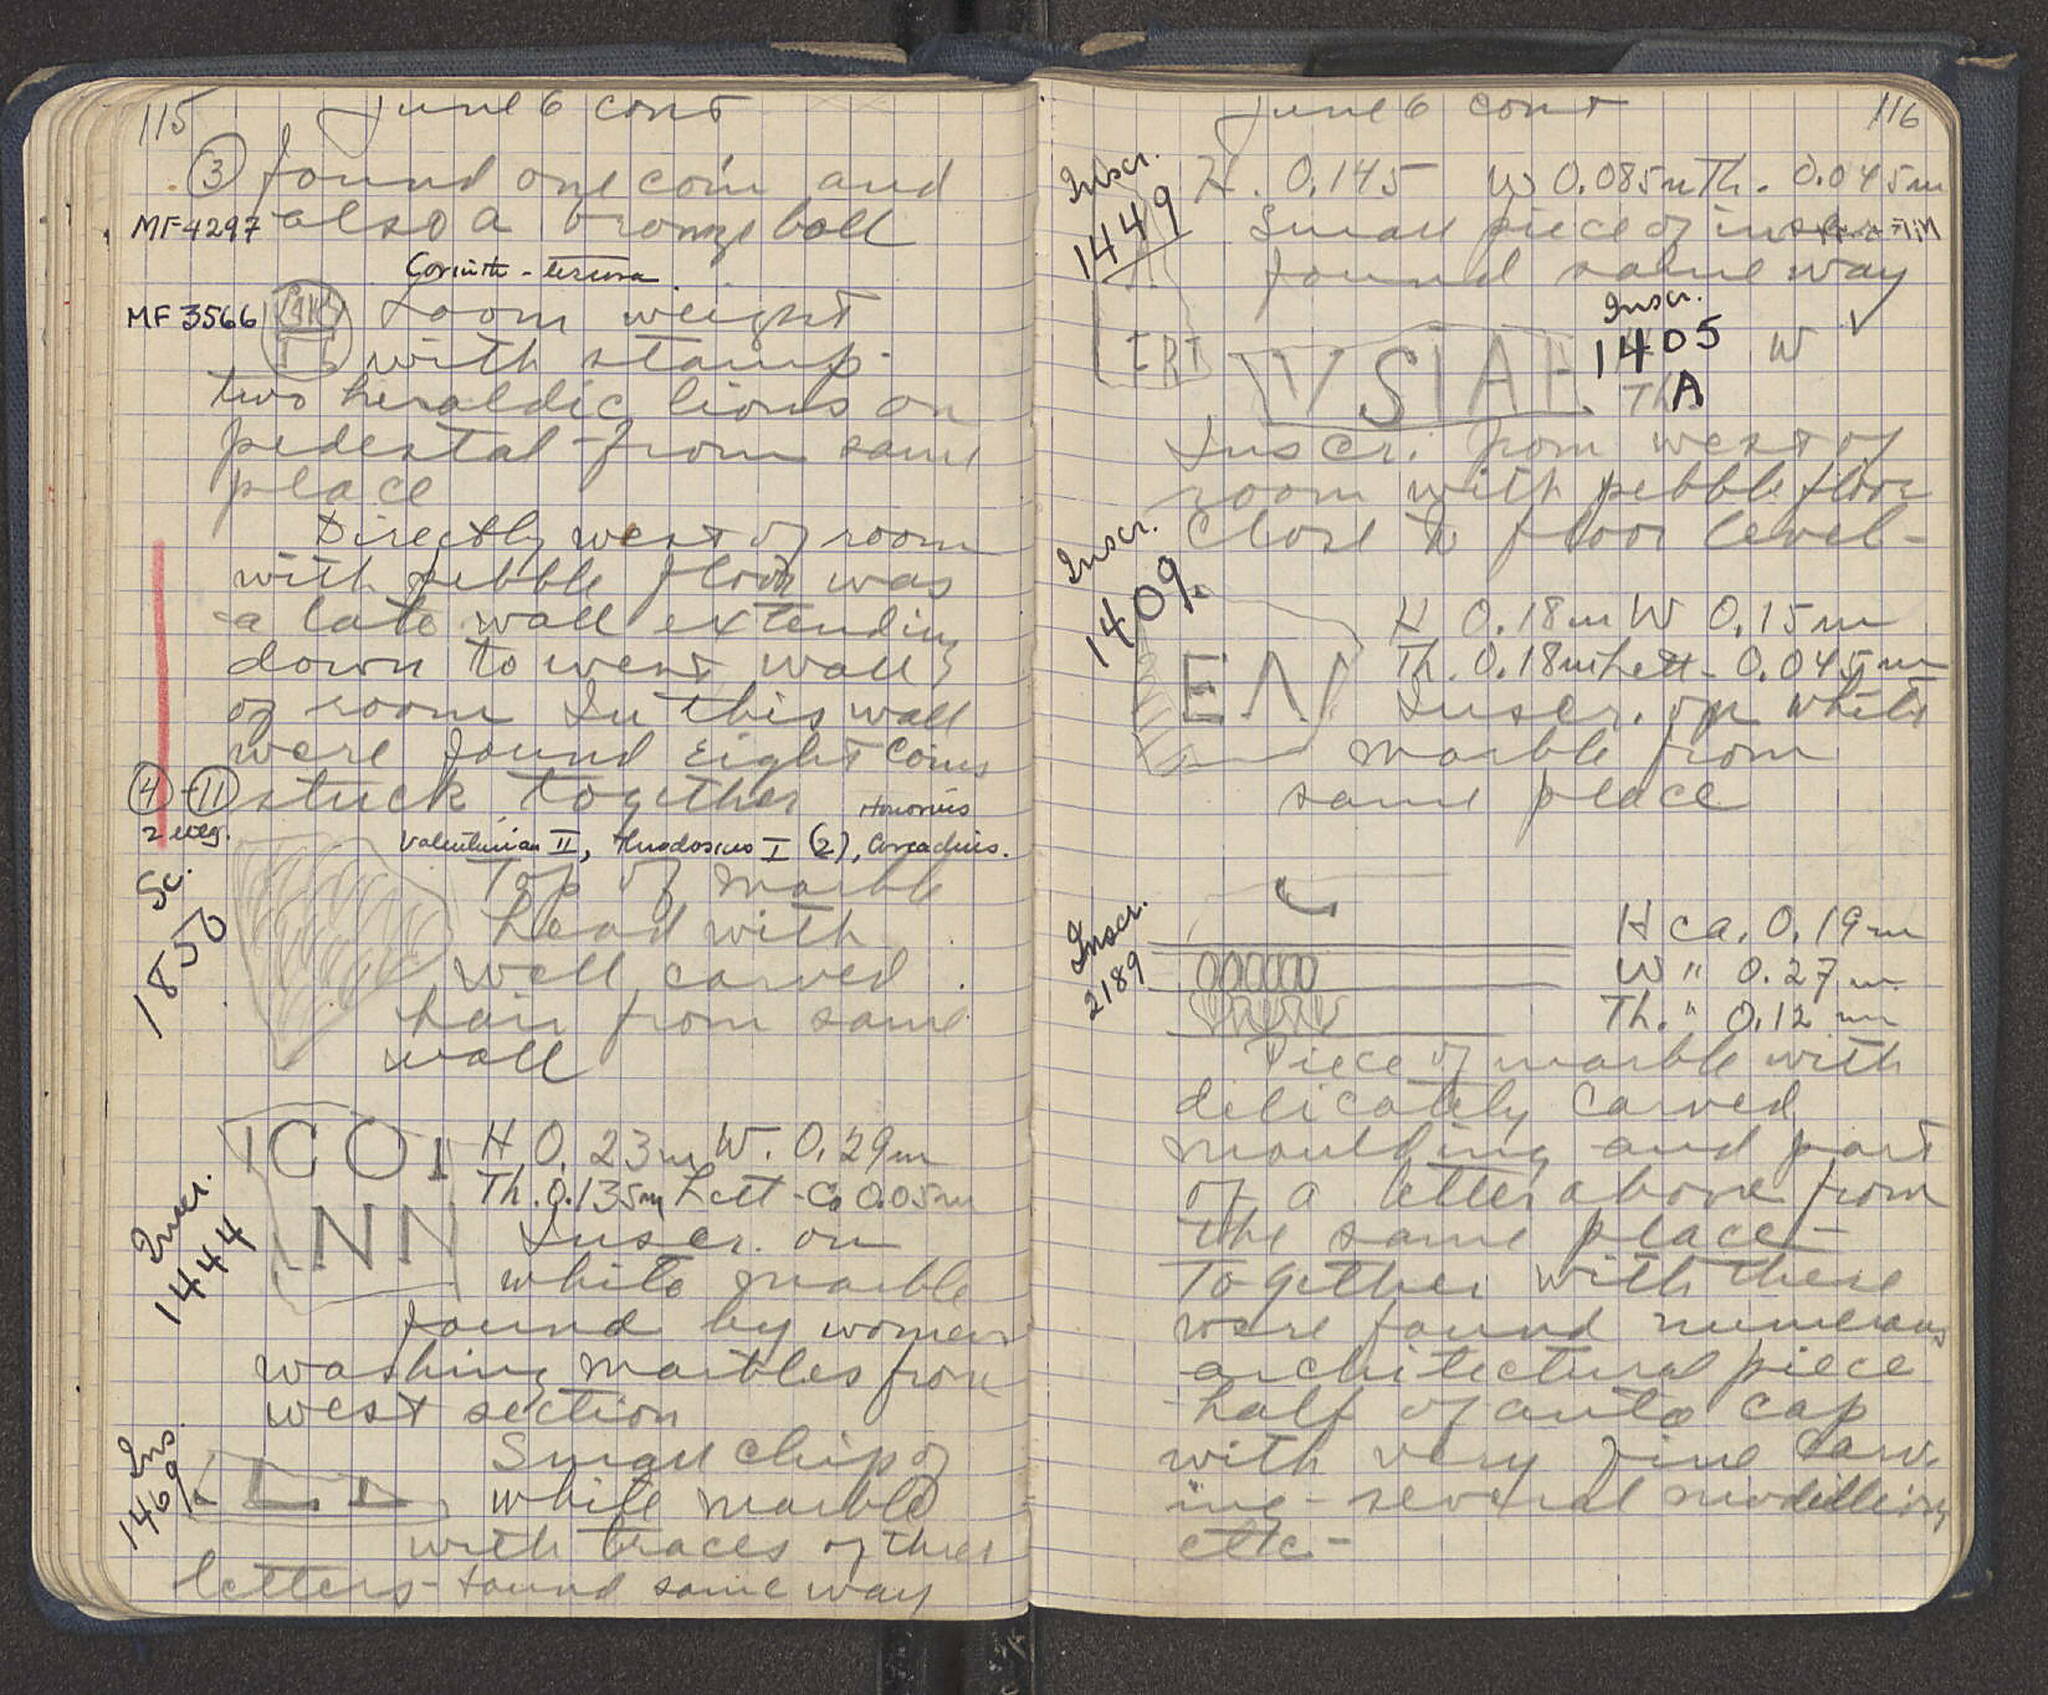 115 June 6 cont
③ found one coin and
MF 4297 also a bronze ball
Corinth -
MF 3566 Loom weight
with stamp -
two heraldic lions on
pedestal - from same
place
Directly west of room
with pebble floor was
a late wall extending
down to west wall
of room In this wall
were found eight coins
④-⑪ stuck together
Honorius
2 illeg. Valentinian II, Theodosius I (2), Arcadius.
Sc. 1850
Top of marble
head with
well carved
hair from same
wall
Inscr. 1444
ICOI
NN
H 0.23m W. 0.29m
Th. 0.135m Lett - Ca 0.05m
Inscr. on
white marble
found by women
washing marbles from
west section
Ins. 1469
Small chip of
white marble
with traces of three
letters - found same way
June 6 cont 116
Inscr. 1449
H. 0.145 W 0.085m Th. 0.045m
Small piece of inscr.
found same way
ERT
VSIAE
Inscr.
1405
A
W
Th.
Inscr. from west of
room with pebble floor
close to floor level -
Inscr. 1409
EN
H 0.18m W 0.15m
Th. 0.18m Lett - 0.045m
Inscr. on white
marble from
same place
Inscr. 2189
H ca. 0.19m
W " 0.27m
Th. " 0.12m
Piece of marble with
delicately carved
moulding and part
of a letter above from
the same place -
Together with these
were found numerous
architectural piece
half of anta cap
with very fine carv-
ing - several modillions
etc -